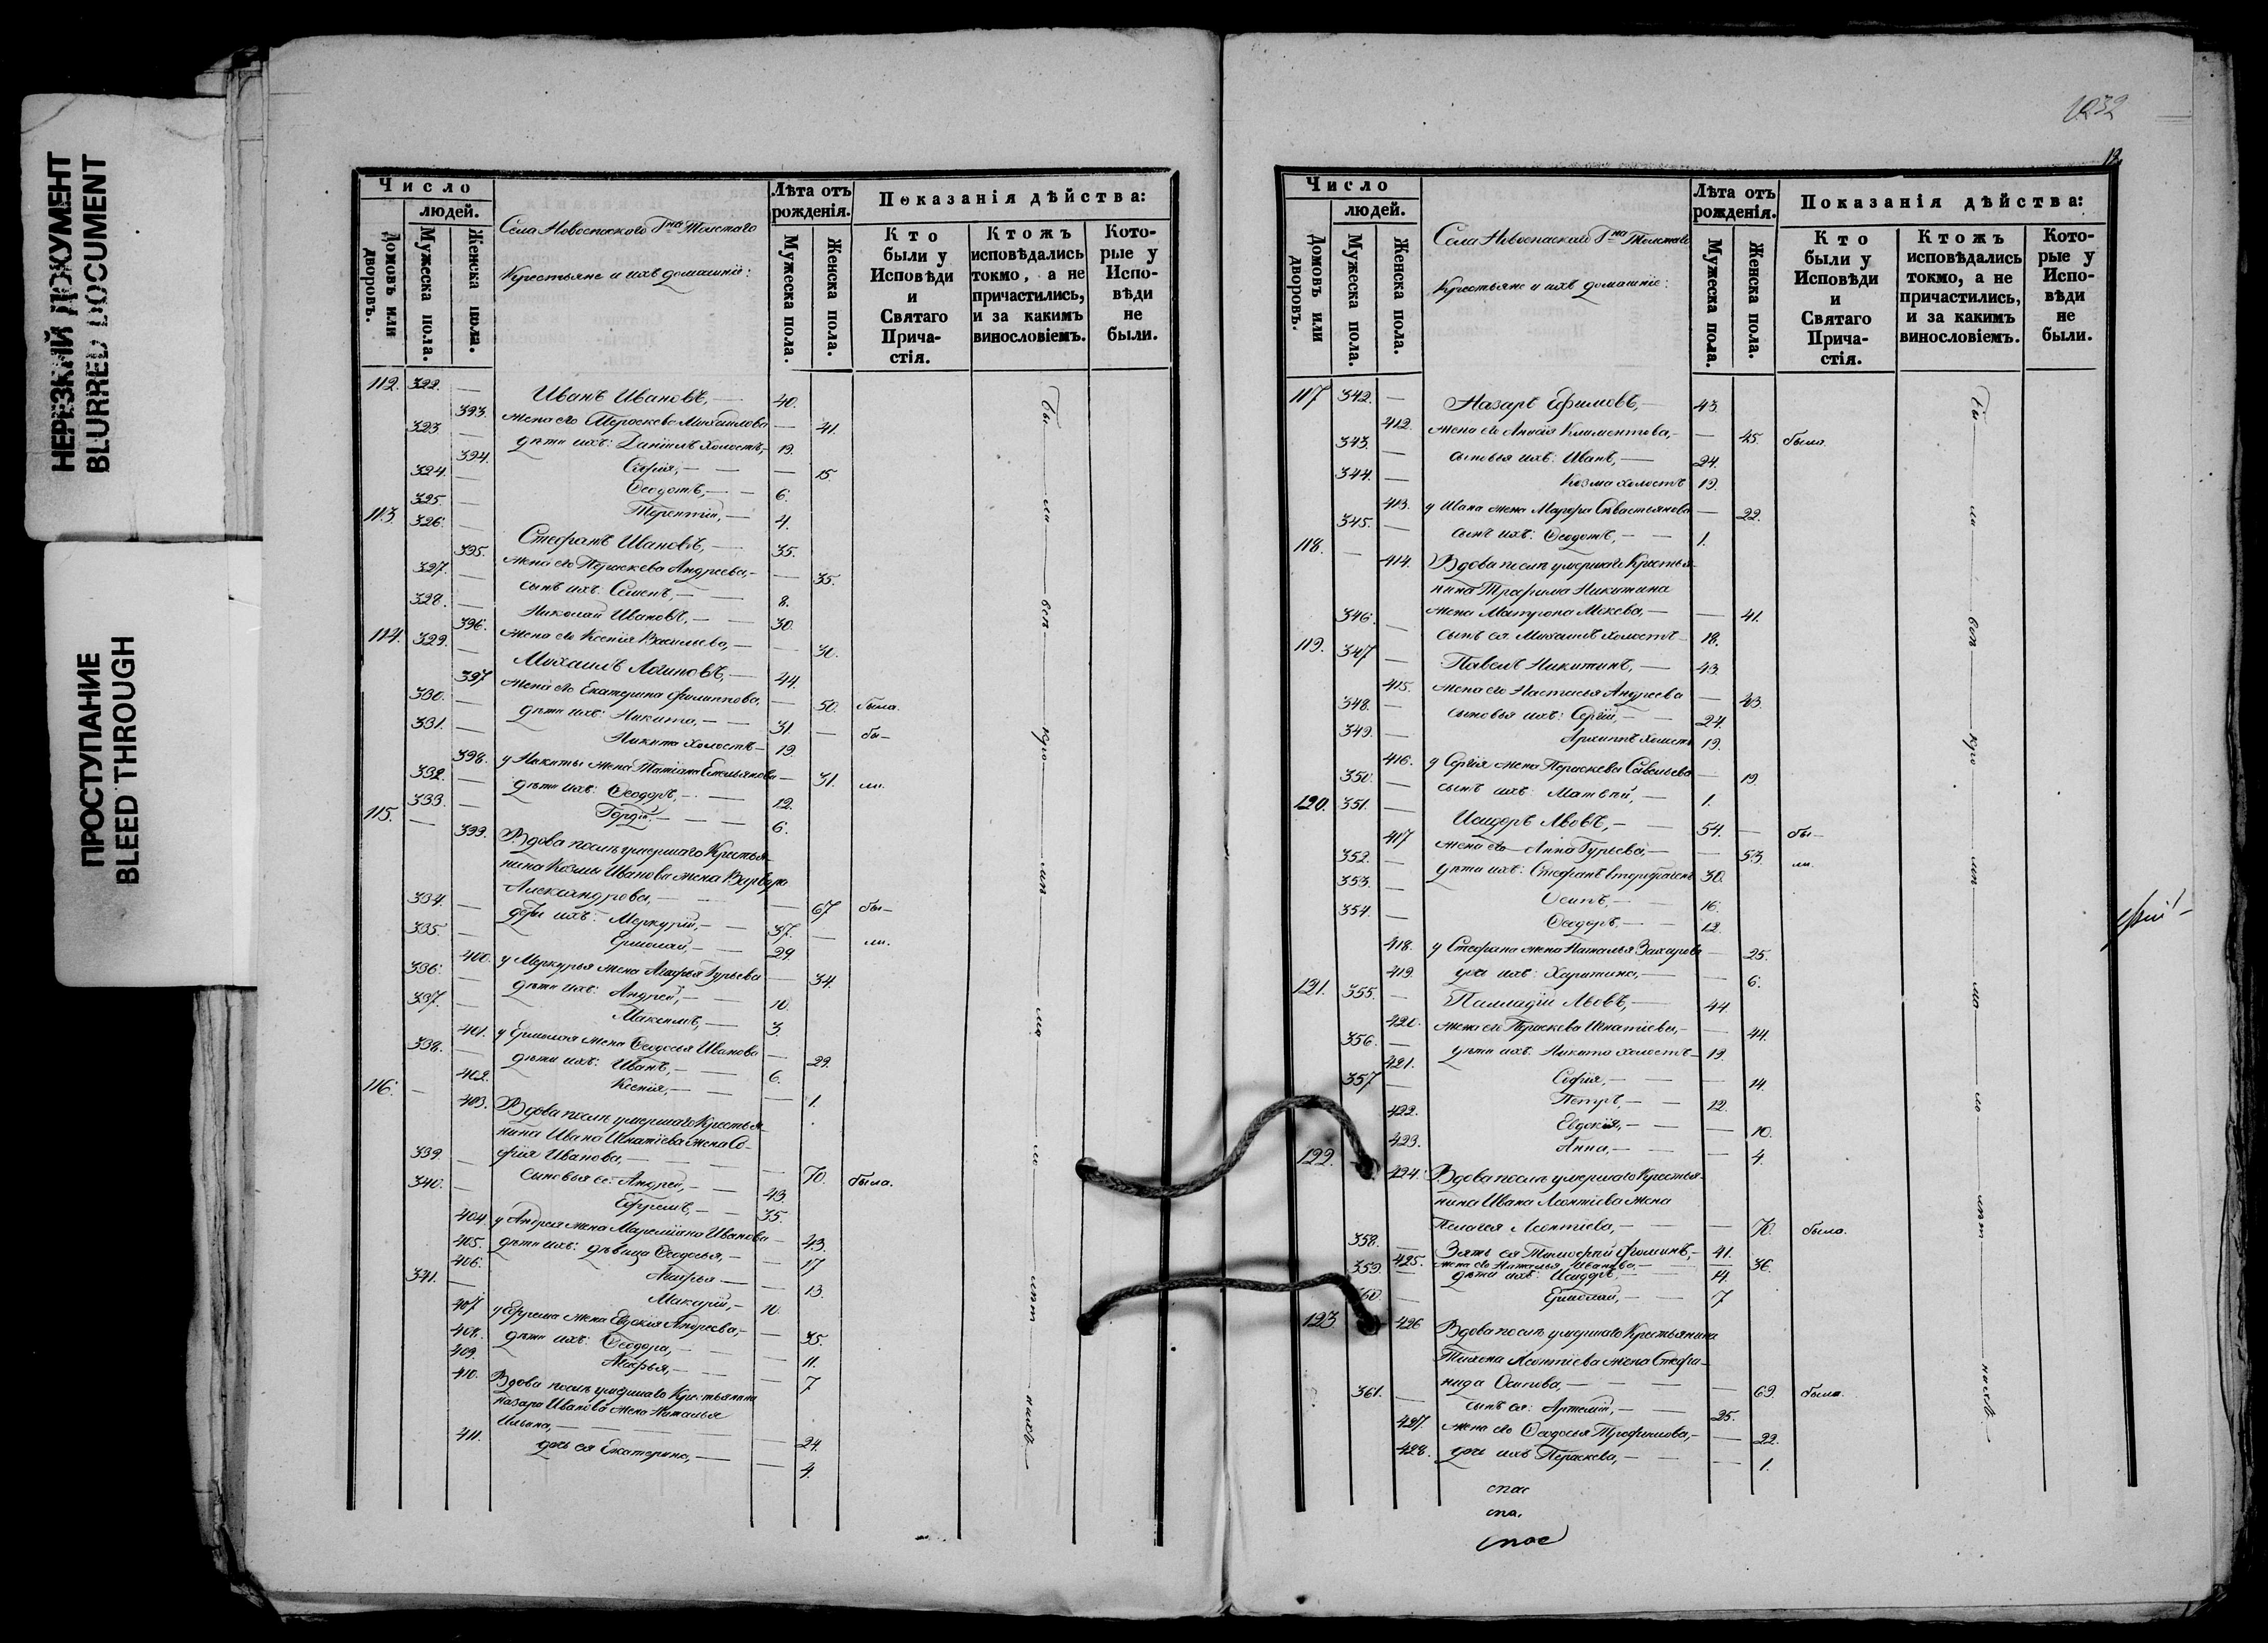 НЕРЕЗКИЙ ДОКУМЕНТ
BLURRED DOCUMENT
ПРОСТУПАНИЕ
BLEED THROUGH
Число
людей.
Домовъ или дворовъ.
Мужеска пола.
Женска пола.
Села Новоспаского Гна Толстаго
Крестьяне и ихъ домашніе:
Лѣта отъ рожденія.
Мужеска пола.
Женска пола.
Показанія дѣйства:
Кто были у Исповѣди и Святаго Прича-стія.
Ктожъ исповѣдались токмо, а не причастились, и за какимъ винословіемъ.
Кото-рые у Испо-вѣди не были.
112. 322. — Иванъ Ивановъ, — 40.
393. жена его Пераскева Михайлова — 41.
323. — дѣти ихъ: Даніилъ холостъ, — 19.
394. Софія, — — — 15.
324. — Ѳеодотъ, — — 6.
325. — Терентій, — 4.
113. 326. — Стефанъ Ивановъ, — 35.
395. жена его Пераскева Андреева, — — 35.
327. — сынъ ихъ: Семенъ, — — 8.
328. — Николай Ивановъ, — — 30.
396. жена его Ксенія Васильева, — — 30.
114. 329. — Михаилъ Логиновъ, — 44.
397 жена его Екатерина Филиппова, — 50. была.
330. — дѣти ихъ: Никита, — — 31. — бы—
331. — Никита холостъ — 19.
398. у Никиты жена Татіана Емельянова — 31. ли.
332. — дѣти ихъ: Ѳеодоръ, — — 12.
333. — Гордій — — — 6.
115. — 399. Вдова послѣ умершаго Крестья-
нина Козмы Иванова жена Варвара
Александрова, — — 67 бы—
334. — дѣти ихъ: Меркурій, — — 37. — ли.
335. — Ермолай, — — 29
400. у Меркурья жена Агафья Гурьева — 34.
336. — дѣти ихъ: Андрей, — — 10.
337. — Максимъ, — — 3.
401. у Ермолая жена Ѳеодосья Иванова — 29.
338. — дѣти ихъ: Иванъ, — — 6.
402. Ксенія, — — — 1.
116. — 403. Вдова послѣ умершаго Крестья-
нина Ивана Игнатіева жена Со-
фія Иванова, — — — 70. была.
339. — сыновья ее: Андрей, — — 43.
340. — Ефремъ, — — 35.
404. у Андрея жена Иванова — 43.
405. дѣти ихъ: дѣвица Ѳеодосья, — — 17
406. Агафья — — 13.
341. — Макарій, — 10.
407 у Ефрема жена Евдокія Андреева, — — 35.
408. дѣти ихъ: Ѳеодора, — — — 11.
409. Агафья, — — 7
410. Вдова послѣ умершаго Крестьянина
Назара Иванова жена Наталья
Ильина, — — — 24.
411. дочь ея Екатерина, — — 4.
Бы — ли — всѣ — кро — мѣ — ма — ло — лѣт — нихъ
1032
12.
Число
людей.
Домовъ или дворовъ.
Мужеска пола.
Женска пола.
Села Новоспаского Гна Толстаго
Крестьяне и ихъ домашніе:
Лѣта отъ рожденія.
Мужеска пола.
Женска пола.
Показанія дѣйства:
Кто были у Исповѣди и Святаго Прича-стія.
Ктожъ исповѣдались токмо, а не причастились, и за какимъ винословіемъ.
Кото-рые у Испо-вѣди не были.
117 342. — Назаръ Ефимовъ, — 43.
412. жена его Климентова, — — 45. была.
343. — сыновья ихъ: Иванъ, — 24.
344. — Козма холостъ 19.
413. у Ивана жена Марфа Севастьянова — 22.
345. — сынъ ихъ: Ѳеодотъ, — — 1.
118. — 414. Вдова послѣ умершаго Крестья-
нина Трофима Никитина
жена Матрона — — 41.
346. — сынъ ея: Михаилъ холостъ — 18.
119. 347 — Павелъ Никитинъ, — 43.
415. жена его Настасья Андреева — 43.
348. — сыновья ихъ: Сергій, — — 24.
349. — Архиппъ холостъ 19.
416. у Сергія жена Пераскева Савельева — 19.
350. — сынъ ихъ: Матвей, — 1.
120. 351. — Исидоръ Львовъ, — — 54. — бы—
417 жена его Анна Гурьева, — — 53. ли.
352. — дѣти ихъ: Стефанъ 30.
353. — Осипъ, — — 16.
354. — Ѳеодоръ, — — 12.
418. у Стефана жена Наталья Захарова — 25.
419. дочь ихъ: Харитина, — — 6.
121. 355. — Палладій Львовъ, — 44.
420. жена его Пераскева Игнатіева, — — 44.
356. — дѣти ихъ: Никита холостъ — 19.
421. Софія, — — — 14.
357 — Петръ, — — 12.
422. Евдокія, — — — 10.
423. Анна, — — — 4.
122. — 424. Вдова послѣ умершаго Крестья-
нина Ивана Леонтіева жена
Пелагея Леонтіева, — — — 70. была.
358. — Зять ея Тимофей Фоминъ, — 41.
425. жена его Наталья Иванова, — — 36.
359. — дѣти ихъ: Исидоръ, — — 14.
360. — Ермолай, — — 7
123. — 426 Вдова послѣ умершаго Крестьянина
Тихона Леонтіева жена Стефа-
нида Осипова, — — — — 69. была.
361. — сынъ ея: Артемій, — — 25.
427. жена его Ѳеодосья Трофимова, — — 22.
428. дочь ихъ Пераскева, — — — 1.
Бы — ли — всѣ — кро — мѣ — ма — ло — лѣт — нихъ
спас
спа.
спас